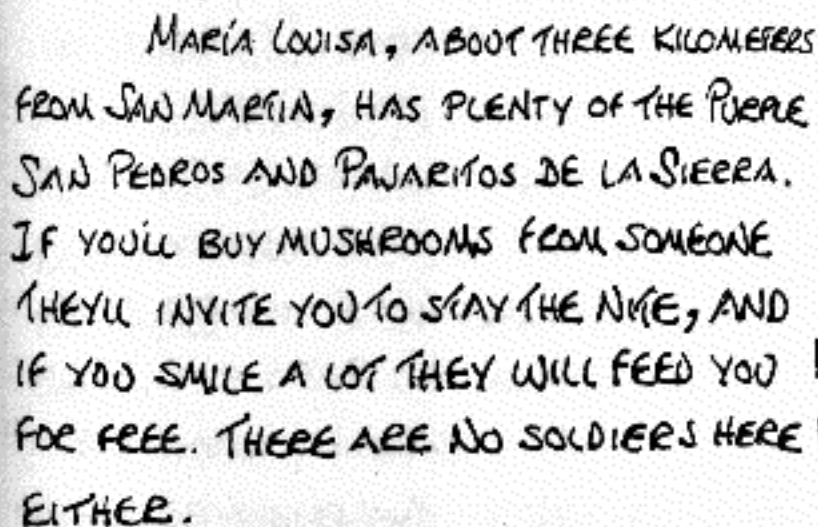 MARÍA LOUISA, ABOUT THREE KILOMETERS
FROM SAN MARTIN, HAS PLENTY OF THE PURPLE
SAN PEDROS AND PAJARITOS DE LA SIERRA.
IF YOU'LL BUY MUSHROOMS FROM SOMEONE
THEY'LL INVITE YOU TO STAY THE NITE, AND
IF YOU SMILE A LOT THEY WILL FEED YOU
FOR FREE. THERE ARE NO SOLDIERS HERE
EITHER.